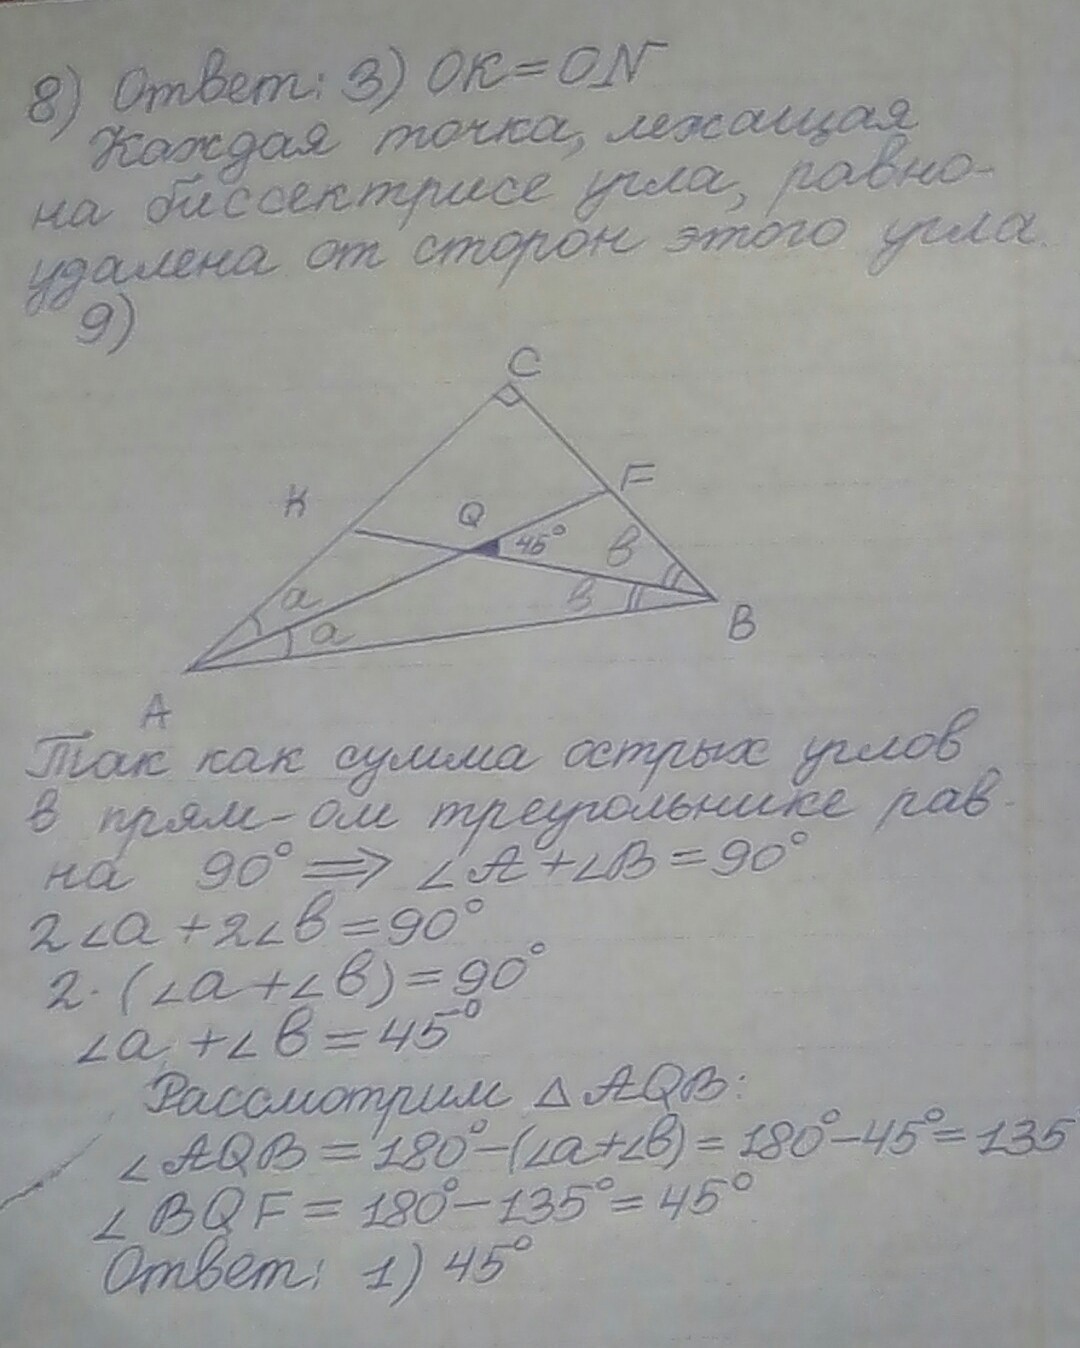 8) Ответ: 3) OK = ON
Каждая точка, лежащая
на биссектрисе угла, равно-
удалена от сторон этого угла.
9)
C
F
K
Q
45°
в
a
в
a
B
A
Так как сумма острых углов
в прям-ом треугольнике рав-
на 90° ⟹ ∠A + ∠B = 90°
2∠a + 2∠в = 90°
2·(∠a + ∠в) = 90°
∠a + ∠в = 45°
Рассмотрим △AQB:
∠AQB = 180° − (∠a+∠в) = 180° − 45° = 135°
∠BQF = 180° − 135° = 45°
Ответ: 1) 45°